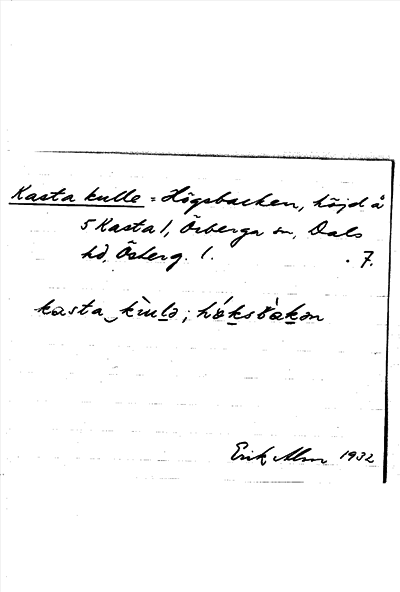 Kasta kulle = Högsbacken, höjd å
5 Kasta 1, Örberga sn, Dals
hd, Österg. l. . 7.
kasta kùlə; hǿksbàkən
Erik Alm 1932